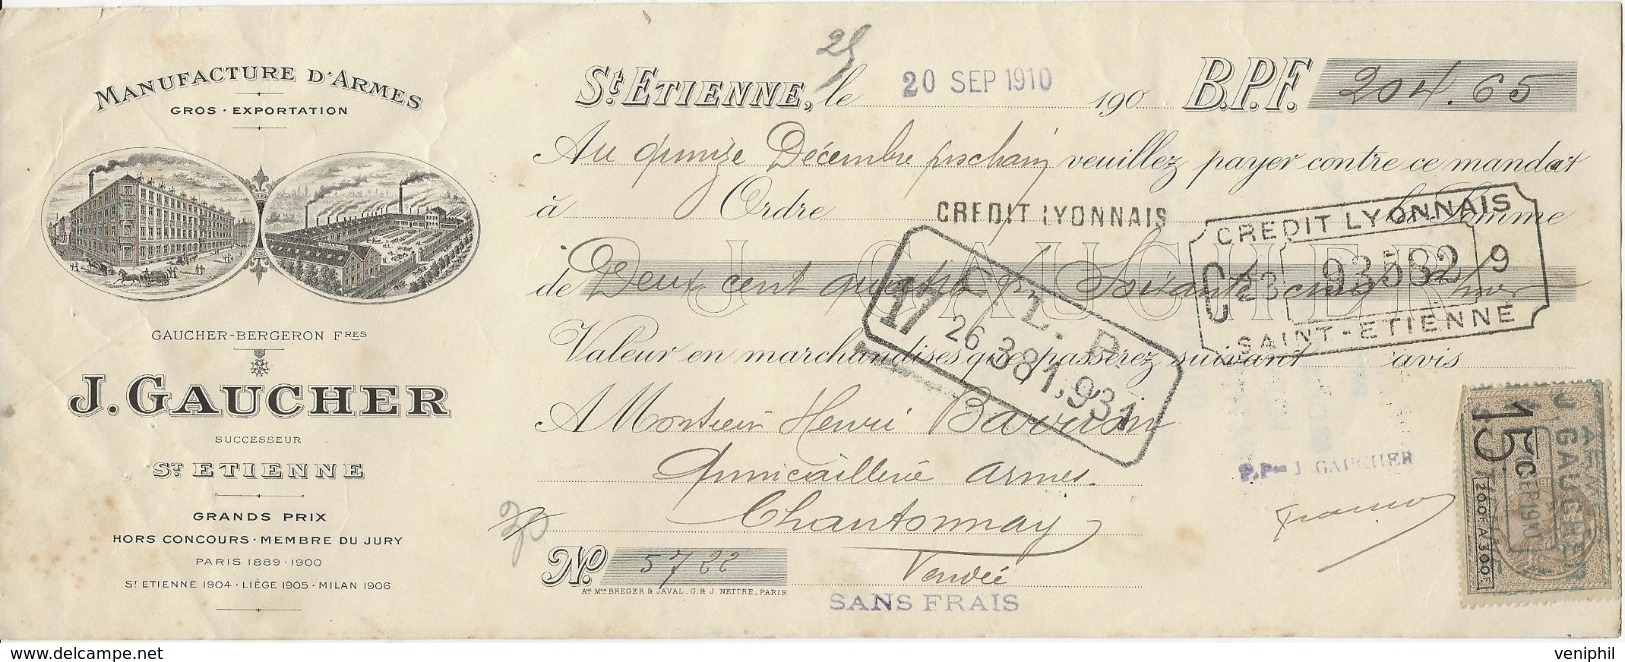 MANUFACTURE D'ARMES
GROS · EXPORTATION
GAUCHER-BERGERON FRES
J. GAUCHER
SUCCESSEUR
ST ETIENNE
GRANDS PRIX
HORS CONCOURS · MEMBRE DU JURY
PARIS 1889 · 1900
ST ETIENNE 1904 · LIÈGE 1905 · MILAN 1906
25
St. ETIENNE, le 20 SEP 1910 190 B.P.F. 204.65
Au quinze Décembre prochain veuillez payer contre ce mandat
à Ordre CREDIT LYONNAIS la Somme
de Deux cent quatre f Soixante cinq
J. GAUCHER
CREDIT LYONNAIS
C 23 93582 9
SAINT-ETIENNE
17 26.381,931
Valeur en marchandises que passerez suivant avis
A Monsieur Henri
Quincaillerie armes.
Chantonnay
Vendée
No. 5722
Ane Mon BREGER & JAVAL, G. & J. NETTRE, PARIS
SANS FRAIS
P.Pon J. GAUCHER
15 C
200F A 300F
J GAUCHER
veniphil
delcampe.net